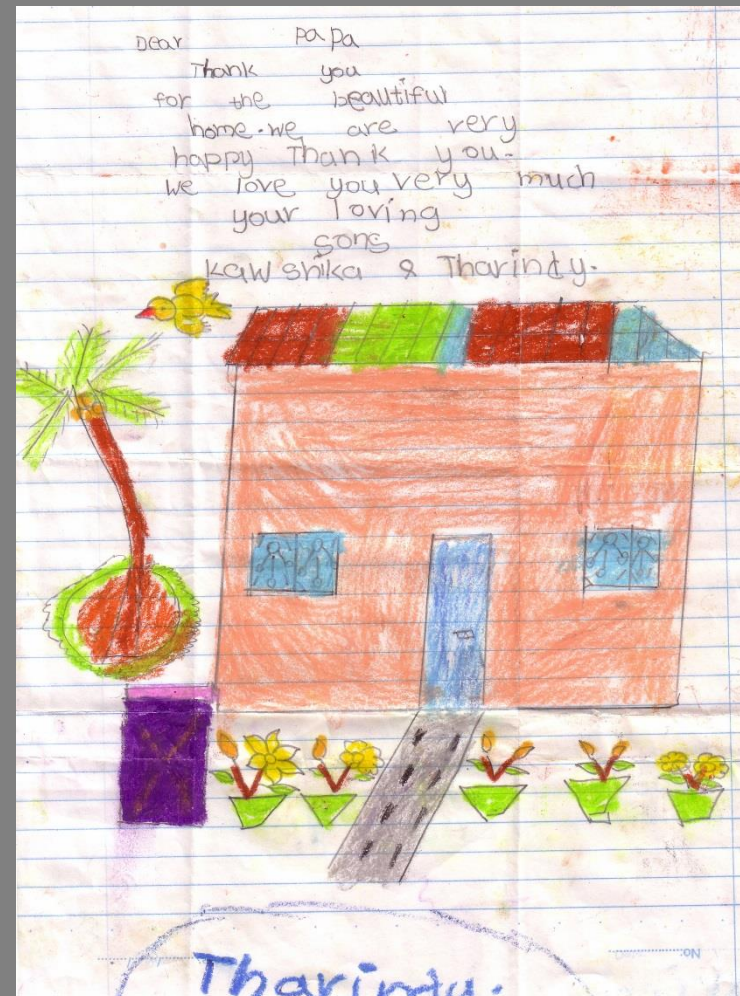 Dear Papa
Thank you
for the beautiful
home. we are very
happy Thank you.
we love you very much
your loving
sons
Kawshika & Tharindy.
No:
Tharindy.